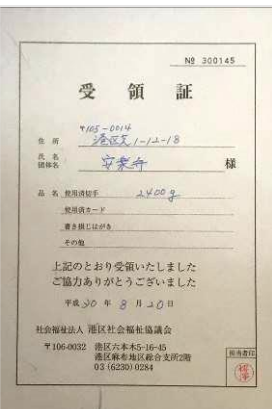 № 300145
受領証
〒105-0014
住所 港区芝1-12-18
氏名
団体名 安楽寺 様
品名 使用済切手 2400g
使用済カード
書き損じはがき
その他
上記のとおり受領いたしました
ご協力ありがとうございました
平成30年8月20日
社会福祉法人 港区社会福祉協議会
〒106-0032 港区六本木5-16-45
港区麻布地区総合支所2階
03(6230)0284
担当者印